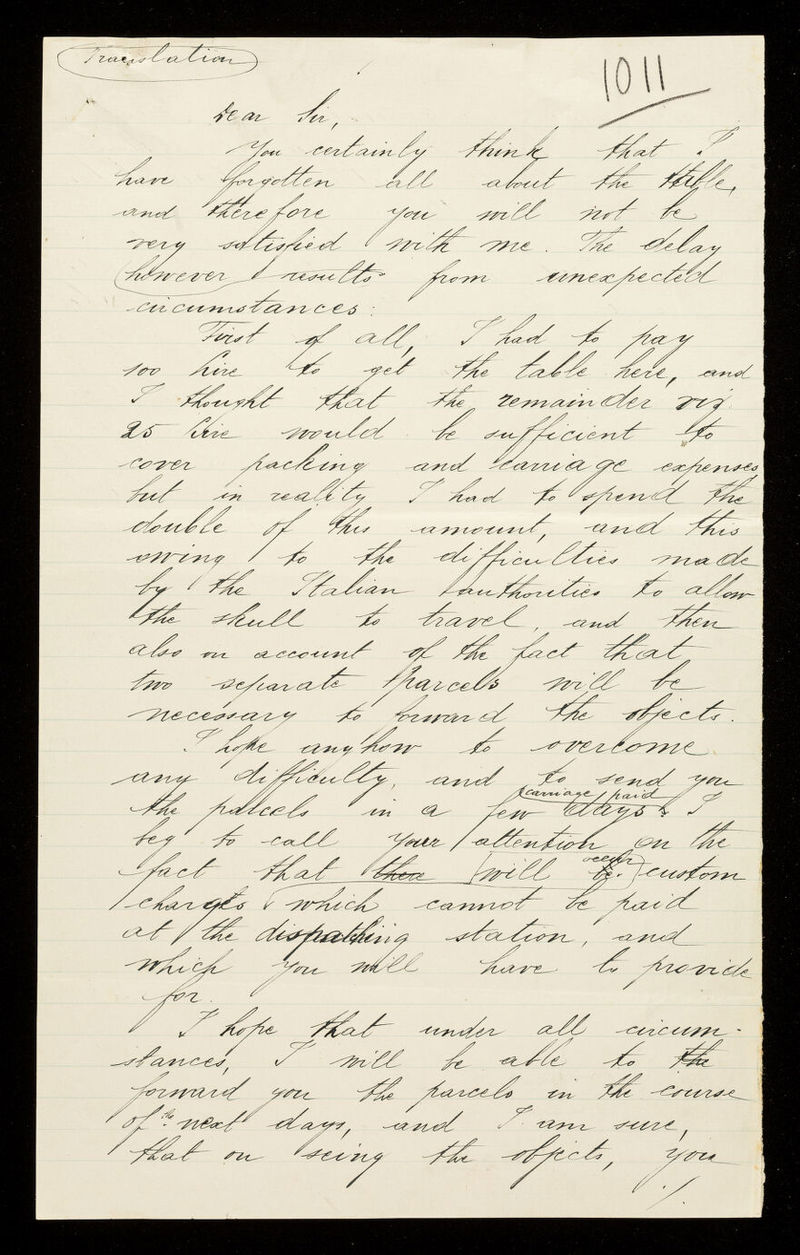 Translation
1011
Dear Sir,
You certainly think that I
have forgotten all about the table,
and therefore you will not be
very satisfied with me. The delay
however results from unexpected
circumstances:
First of all, I had to pay
100 Lire to get the table here, and
I thought that the remainder viz.
25 Lire would be sufficient to
cover packing and carriage expenses,
but in reality I had to spend the
double of this amount, and this
owing to the difficulties made
by the Italian authorities to allow
the skull to travel, and then
also on account of the fact that
two separate parcels will be
necessary to forward the objects.
I hope anyhow to overcome
any difficulty, and to send you
carriage paid
the parcels in a few days. I
beg to call your attention on the
occur
fact that there will be custom
charges which cannot be paid
at the dispatching station, and
which you will have to provide
for.
I hope that under all circum-
stances, I will be able to the
forward you the parcels in the course
of the next days, and I am sure,
that on seing the objects, you
./.